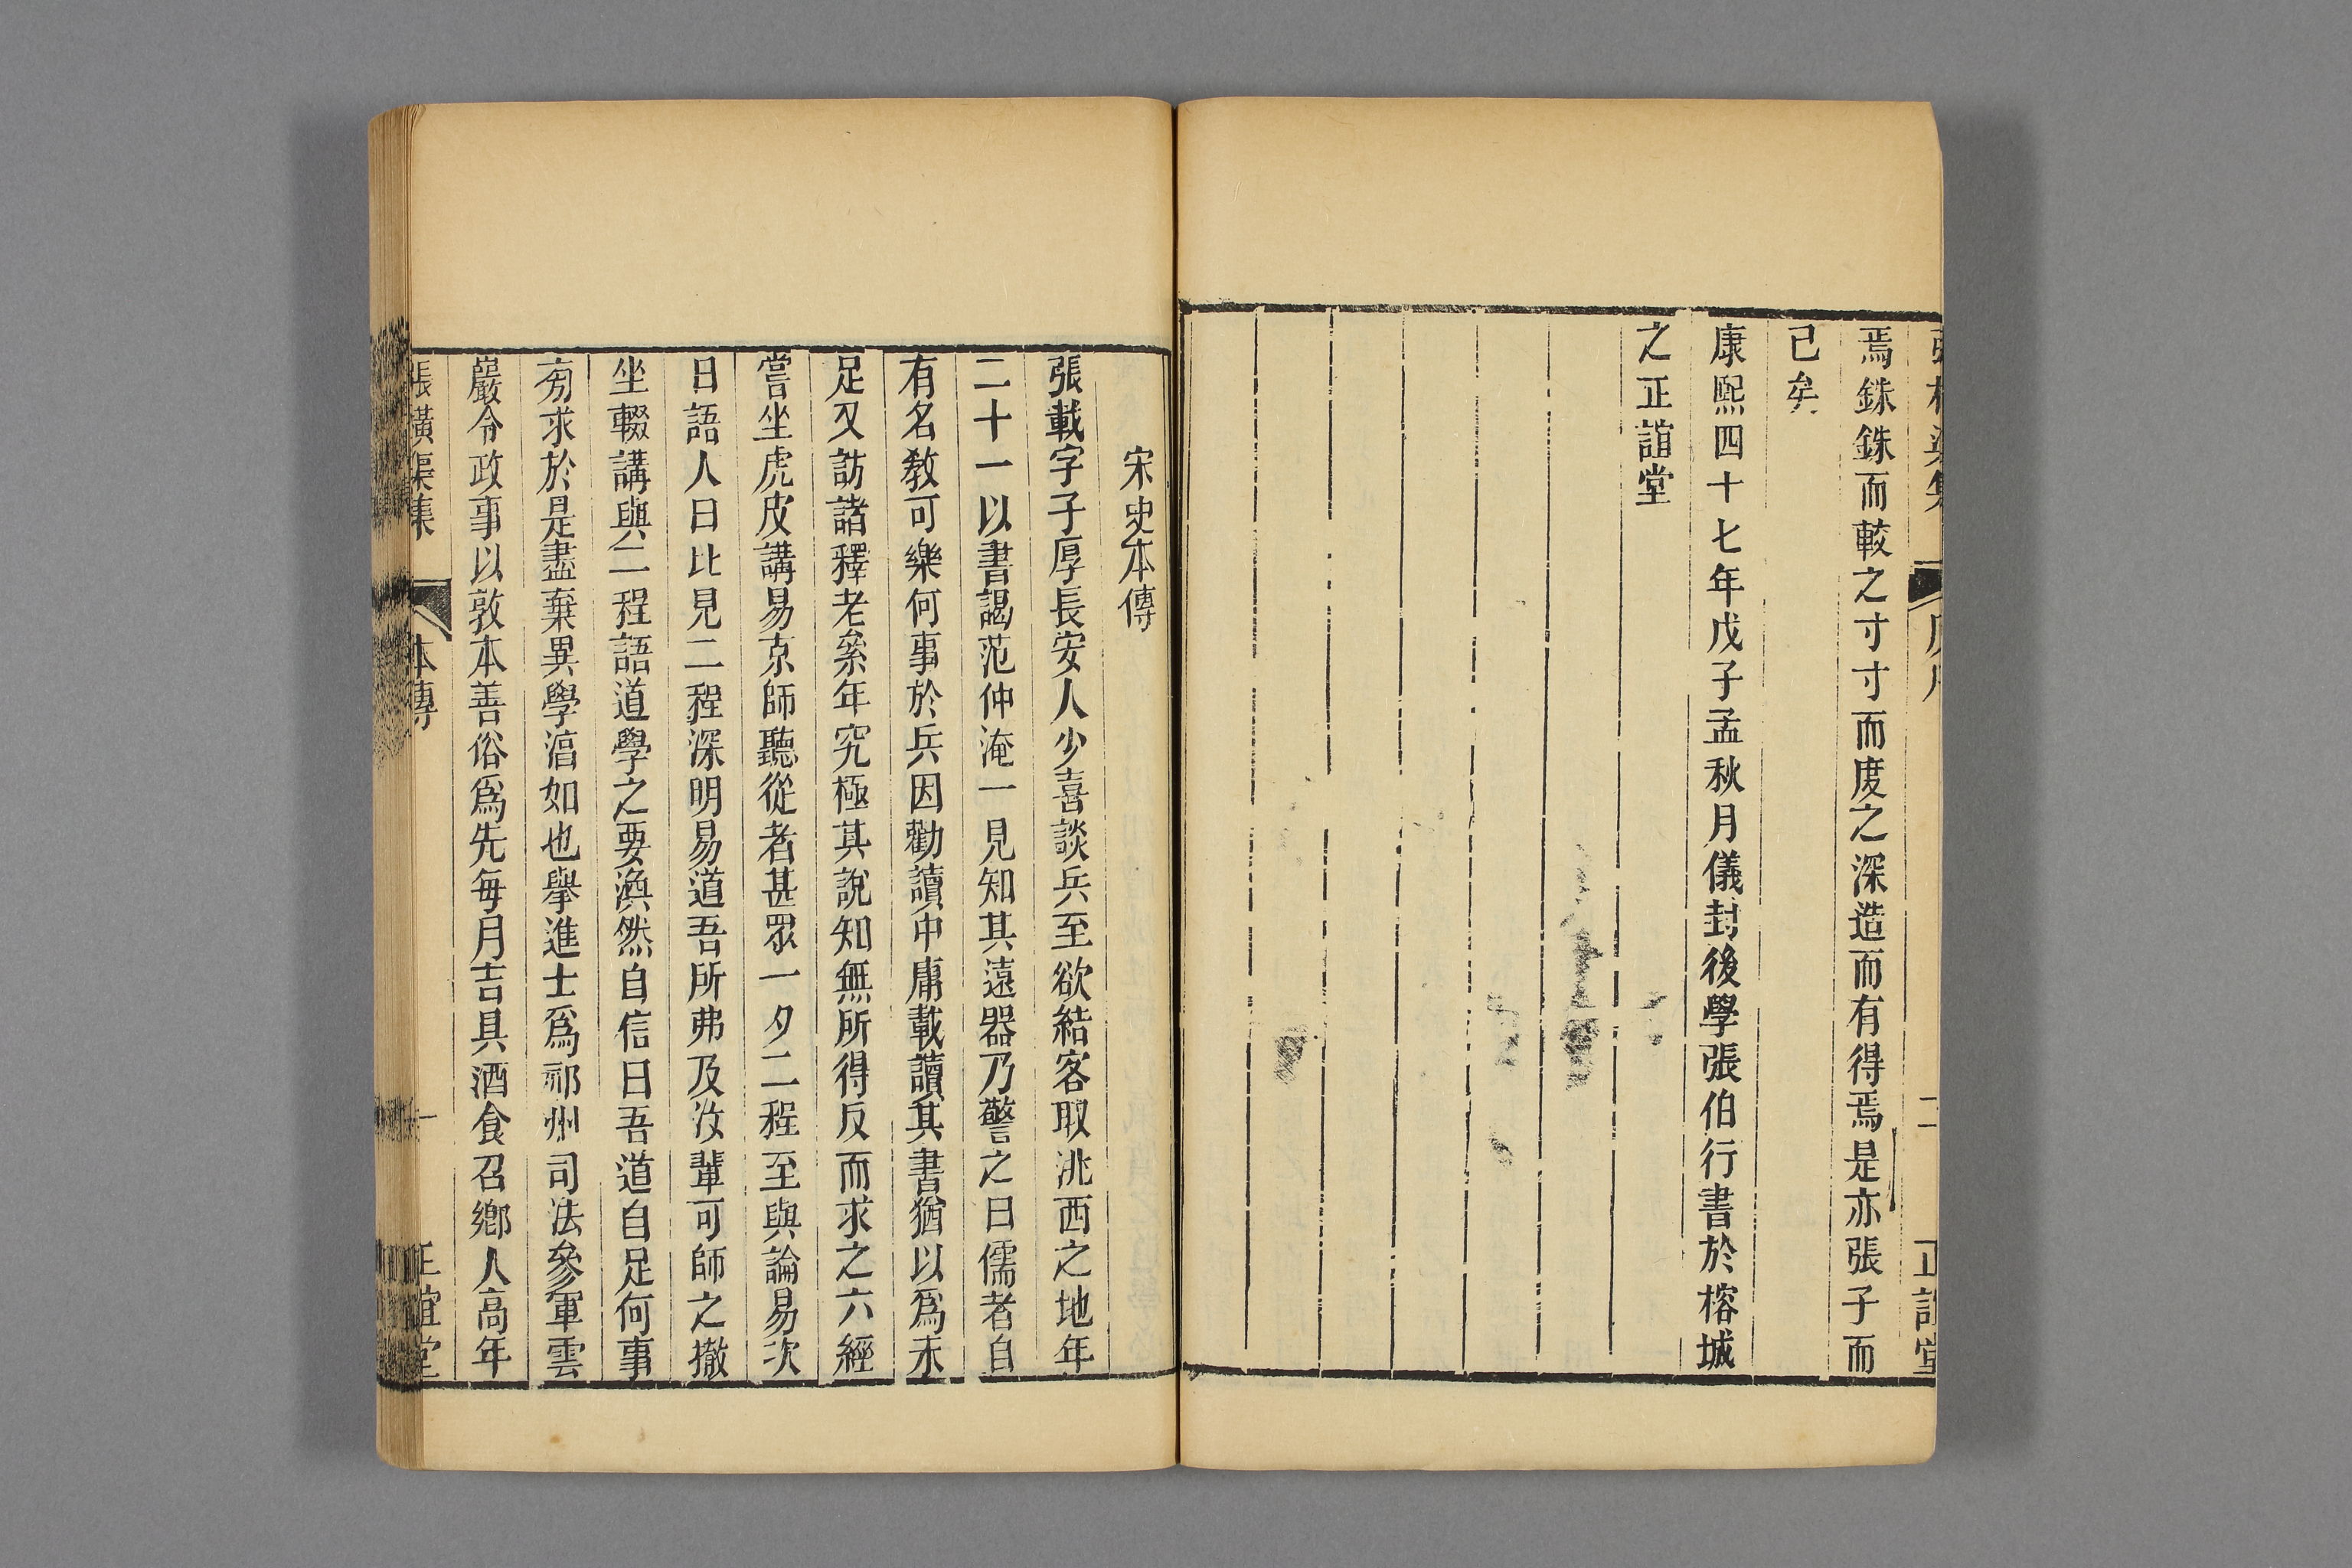 焉銖銖而較之寸寸而度之深造而有得焉是亦張子而
已矣
康熙四十七年戊子孟秋月儀封後學張伯行書於榕城
之正誼堂
宋史本傳
張載字子厚長安人少喜談兵至欲結客取洮西之地年
二十一以書謁范仲淹一見知其遠器乃警之曰儒者自
有名教可樂何事於兵因勸讀中庸載讀其書猶以爲未
足又訪諸釋老絫年究極其說知無所得反而求之六經
嘗坐虎皮講易京師聽從者甚眾一夕二程至與論易次
日語人曰比見二程深明易道吾所弗及汝輩可師之撤
坐輟講與二程語道學之要渙然自信曰吾道自足何事
旁求於是盡棄異學湻如也擧進士爲祁州司法參軍雲
巖令政事以敦本善俗爲先每月吉具酒食召鄉人高年
張橫渠集
本傳
一
正誼堂